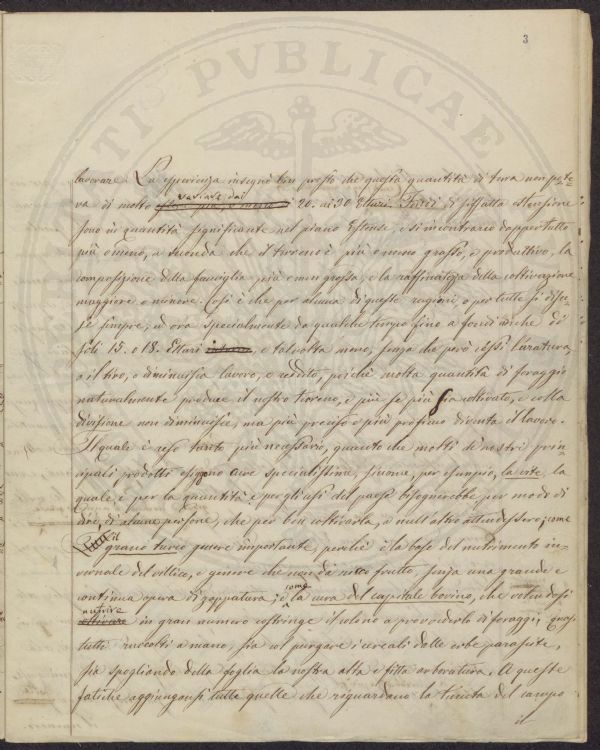 3
lavorare. La esperienza insegnò ben presto che questa quantità di terra non pote=
va di molto variare dai 20. ai 30 Ettari. Fondi di siffatta estensione
sono in quantità significante nel piano Estense, e si incontrano dappertutto
più o meno, a seconda che il terreno è più o meno grasso, e produttivo, la
composizione della famiglia più o men grossa, e la raffinatezza della coltivazione
maggiore o minore. Così è che per alcuna di queste ragioni, o per tutte si disce=
se sempre, ed ora specialmente da qualche tempo fino a fondi anche di
soli 15. o 18. Ettari, e talvolta meno, senza che però cessi l'aratura,
o il tiro, o diminuisca lavoro, e reddito, poichè molta quantità di foraggio
naturalmente produce il nostro terreno, e più se più sia coltivato, e colla
divisione non diminuisce, ma più preciso e più profimo diventa il lavoro.
Il quale è reso tanto più necessario, quanto che molti de' nostri prin=
cipali prodotti esigono cure specialissime, siccome, per esempio, la vite, la
quale e per la quantità e per gli usi del paese bisognerebbe per modo di
dire di alcune persone, che per ben coltivarla, a null'altro attendessero; come
il
grano turco pure importante, perchè è la base del nutrimento in=
vernale del villico, e genere che non dà ricco frutto, senza una grande e
continua opera di zappatura; e come la cura del capitale bovino, che volendosi
nutrire in gran numero costringe il colono a provvederlo di foraggi, quasi
tutti raccolti a mano, sia col purgare i cereali dalle erbe parassite,
sia spogliando della foglia la nostra alta e fitta arboratura. A queste
fatiche aggiungansi tutte quelle che riguardano la tenuta del campo
il
PUBLICAE